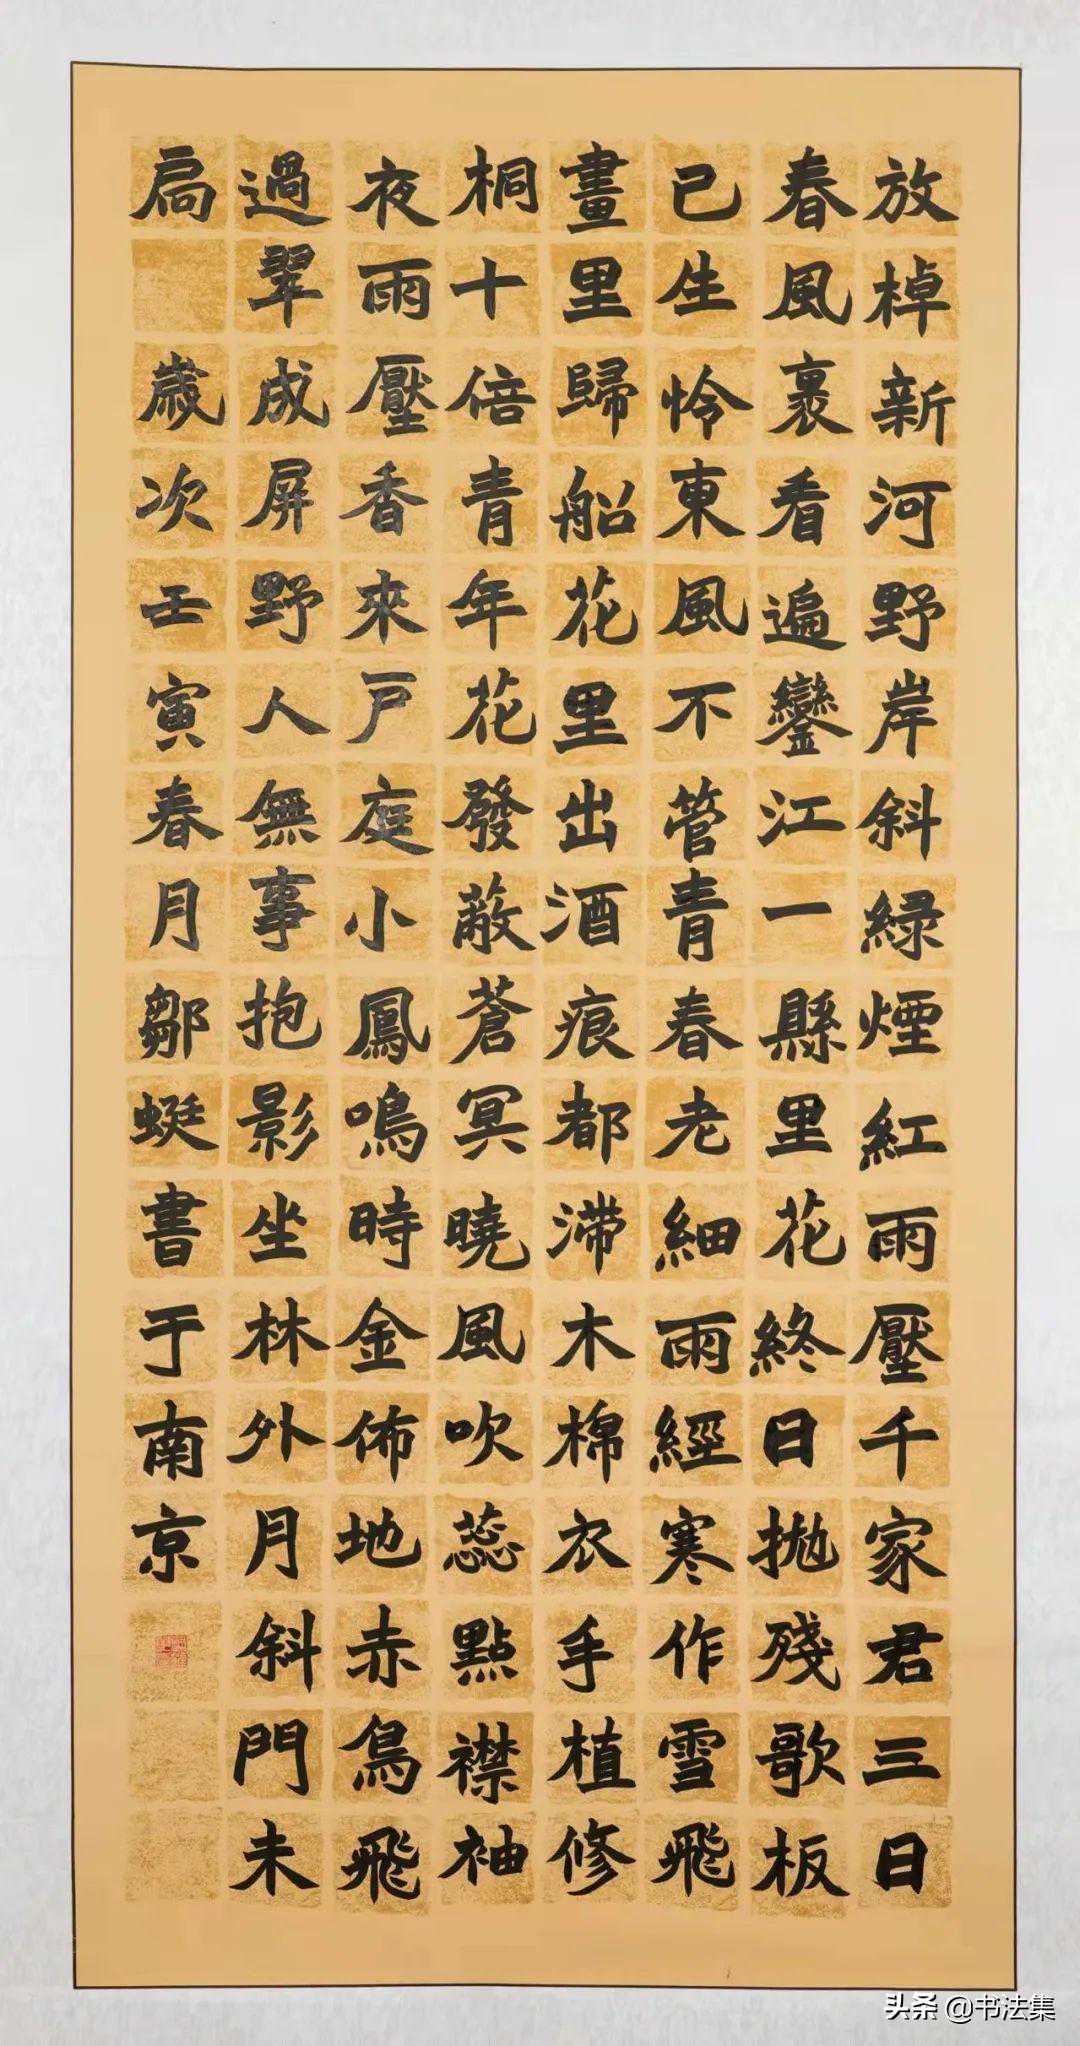 放棹新河野岸斜綠煙紅雨壓千家君三日
春風裏看遍鑾江一縣里花終日拋殘歌板
已生怜東風不管青春老細雨經寒作雪飛
畫里歸船花里出酒痕都滯木棉衣手植修
桐十倍青年花發蔽蒼冥曉風吹蕊點襟袖
夜雨壓香來戸庭小鳳鳴時金佈地赤鳥飛
過翠成屏野人無事抱影坐林外月斜門未
扃 歲次壬寅春月鄒蜓書于南京
头条 @书法集